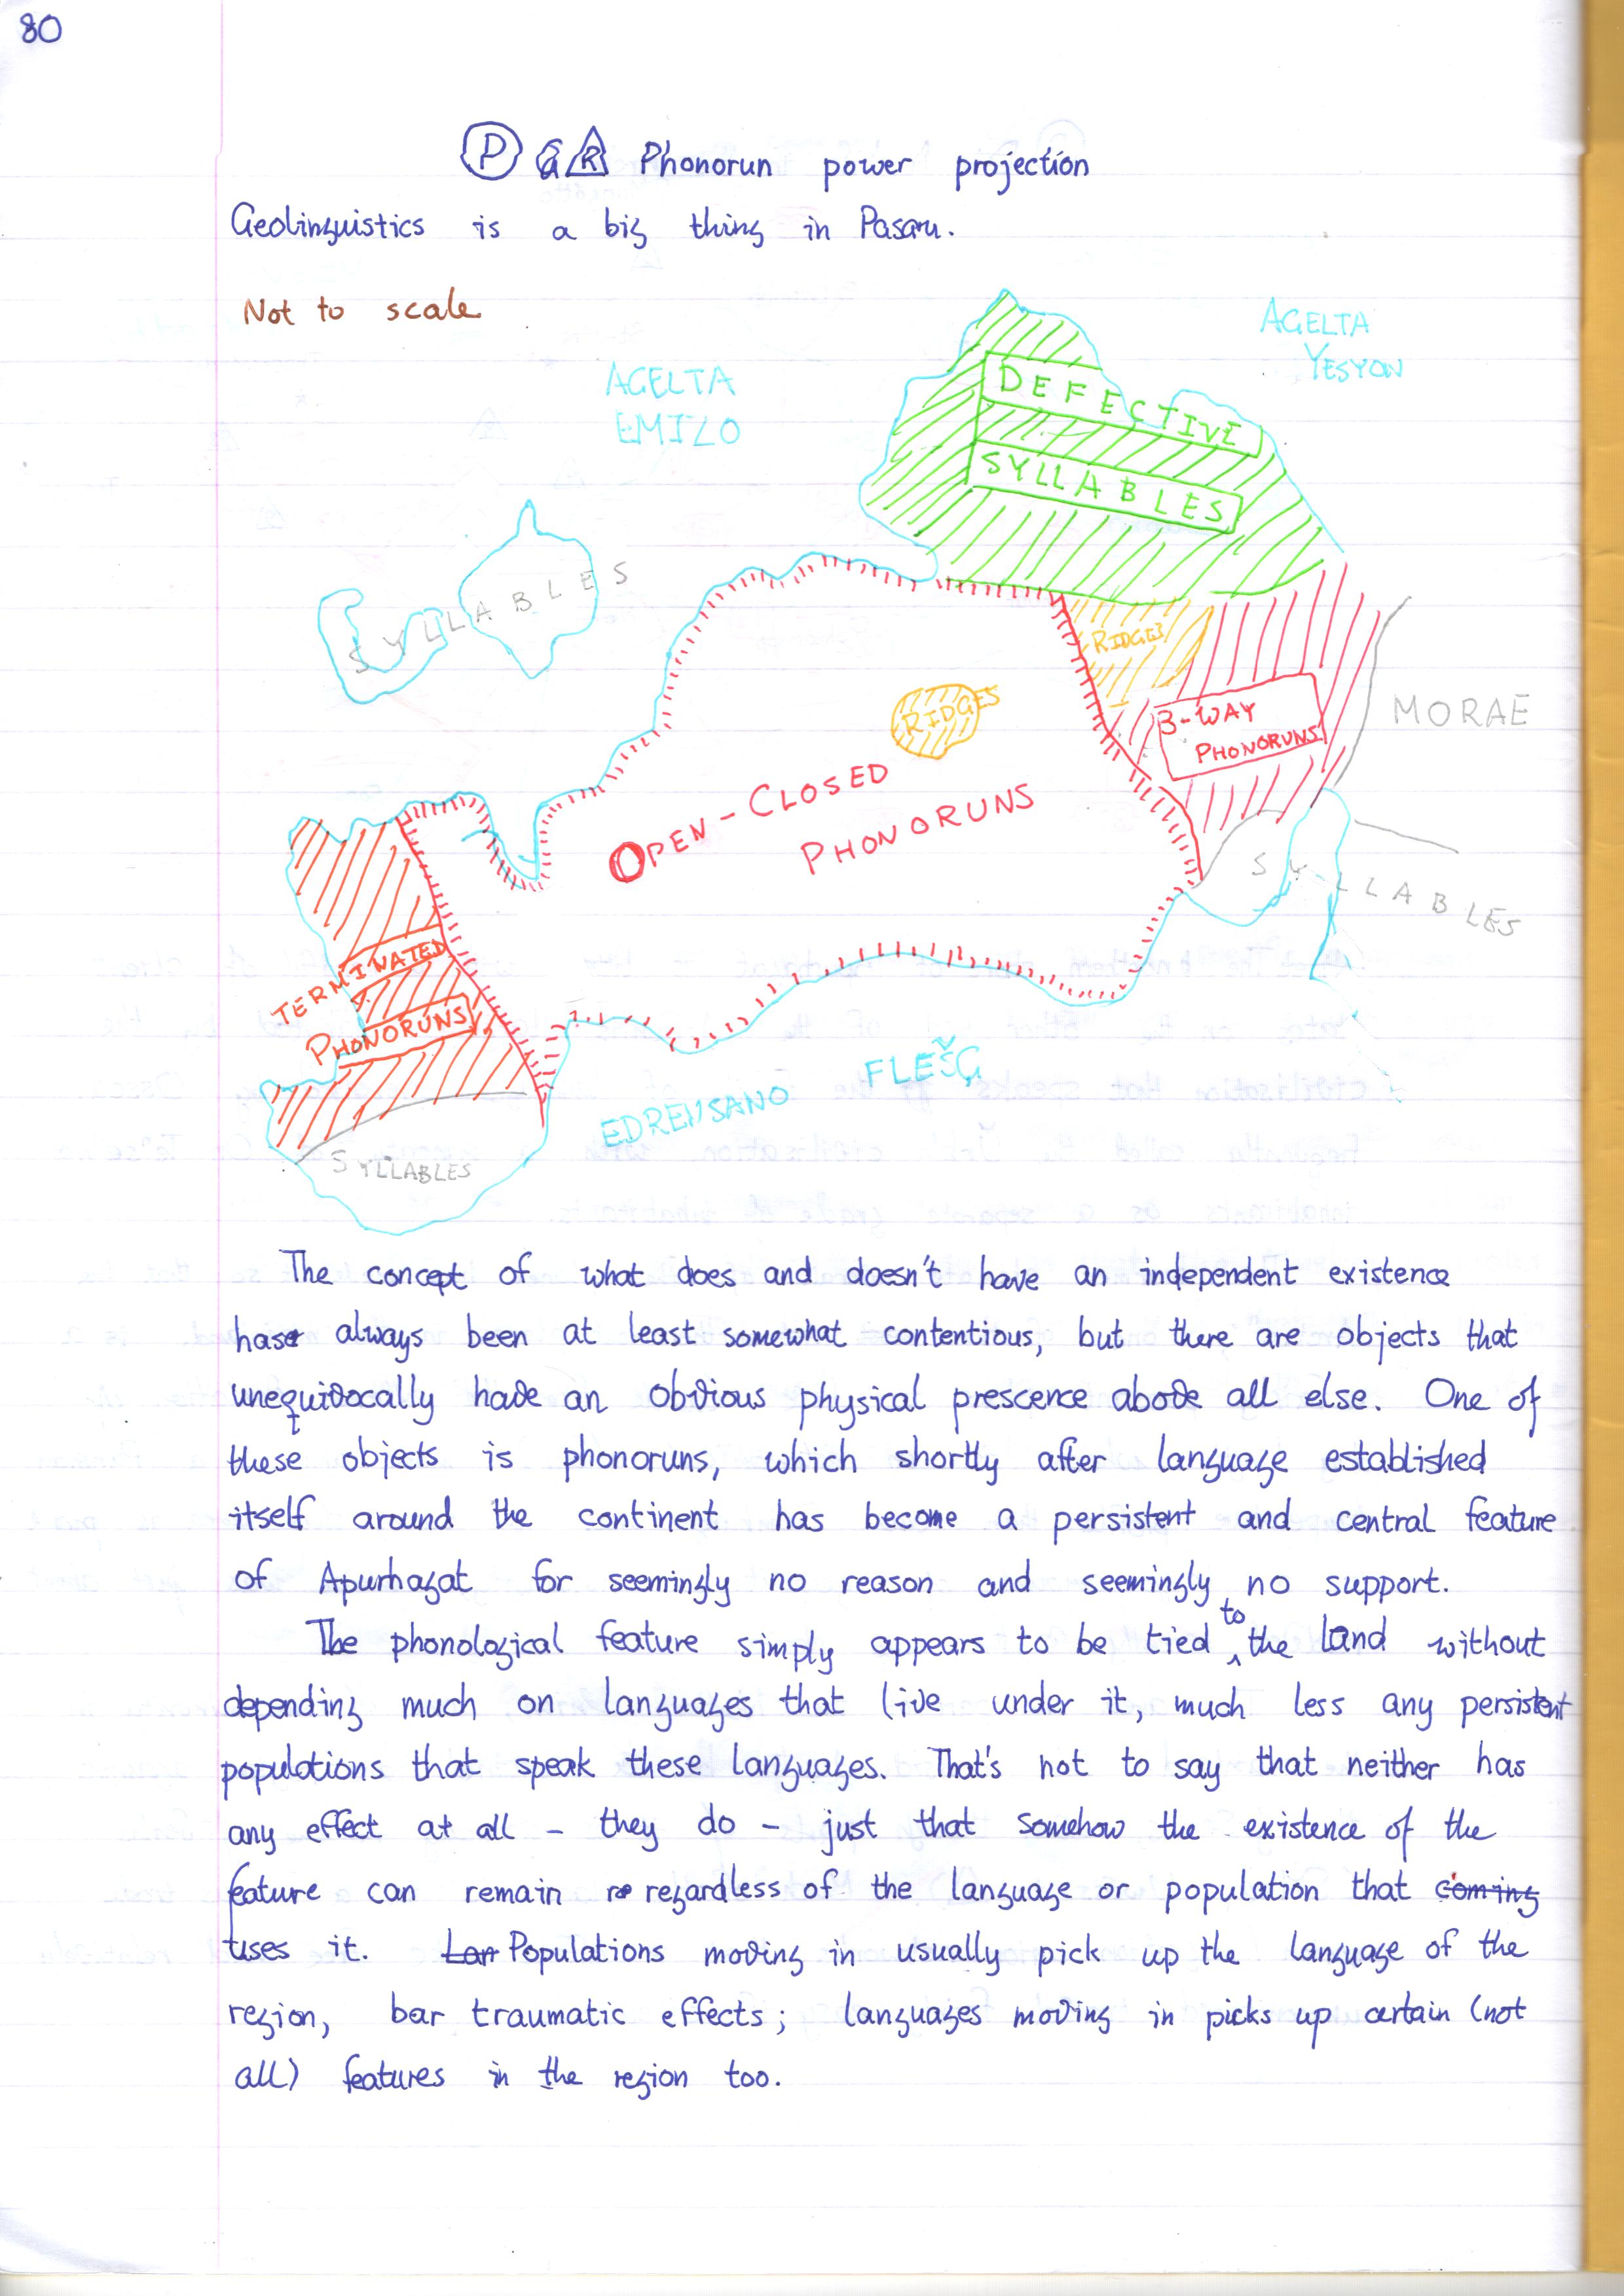 80
P & R Phonorun power projection
Geolinguistics is a big thing in Pasaru.
Not to scale
AGELTA
YESYON
AGELTA
EMIZO
DEFECTIVE
SYLLABLES
SYLLABLES
RIDGES
RIDGES
3-WAY
PHONORUNS
MORAE
OPEN-CLOSED
PHONORUNS
SYLLABLES
TERMINATED
PHONORUNS
FLEŠÇI
EDREUSANO
SYLLABLES
The concept of what does and doesn't have an independent existence
has always been at least somewhat contentious, but there are objects that
unequivocally have an obvious physical prescence above all else. One of
these objects is phonoruns, which shortly after language established
itself around the continent has become a persistent and central feature
of Apurhagat for seemingly no reason and seemingly no support.
The phonological feature simply appears to be tied to the land without
depending much on languages that live under it, much less any persistent
populations that speak these languages. That's not to say that neither has
any effect at all - they do - just that somehow the existence of the
feature can remain re regardless of the language or population that coming
uses it. Lan Populations moving in usually pick up the language of the
region, bar traumatic effects; languages moving in picks up certain (not
all) features in the region too.